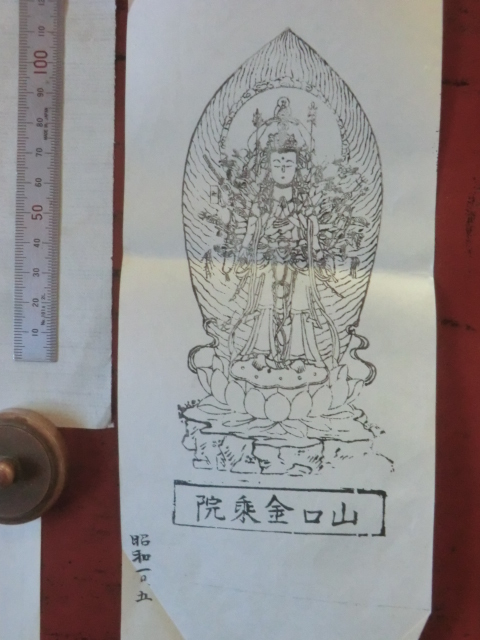 山口金乗院
昭和一〇.五
10 20 30 40 50 60 70 80 90 100